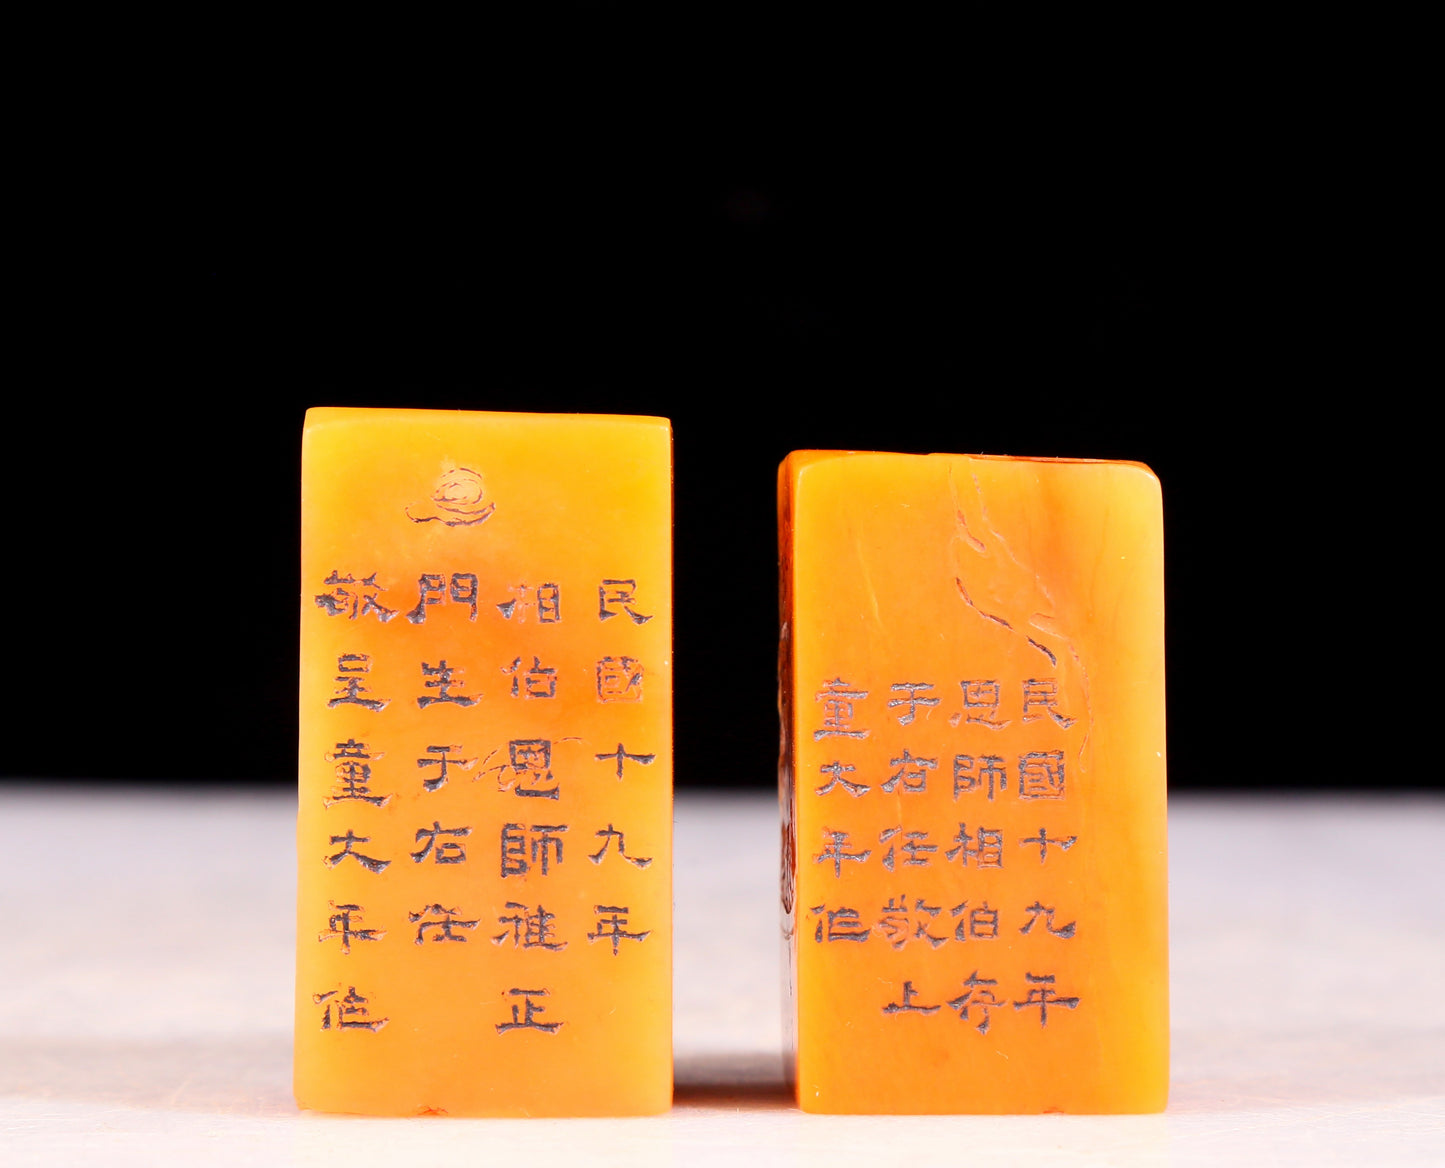 民國十九年
相伯恩師雅正
門生于右任
敬呈童大年作
民國十九年
恩師相伯存
于右任敬上
童大年作